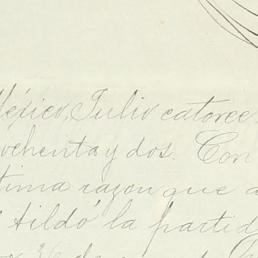 México, Julio catorce
ochenta y dos. Con
tima razon que a
tildó la partid